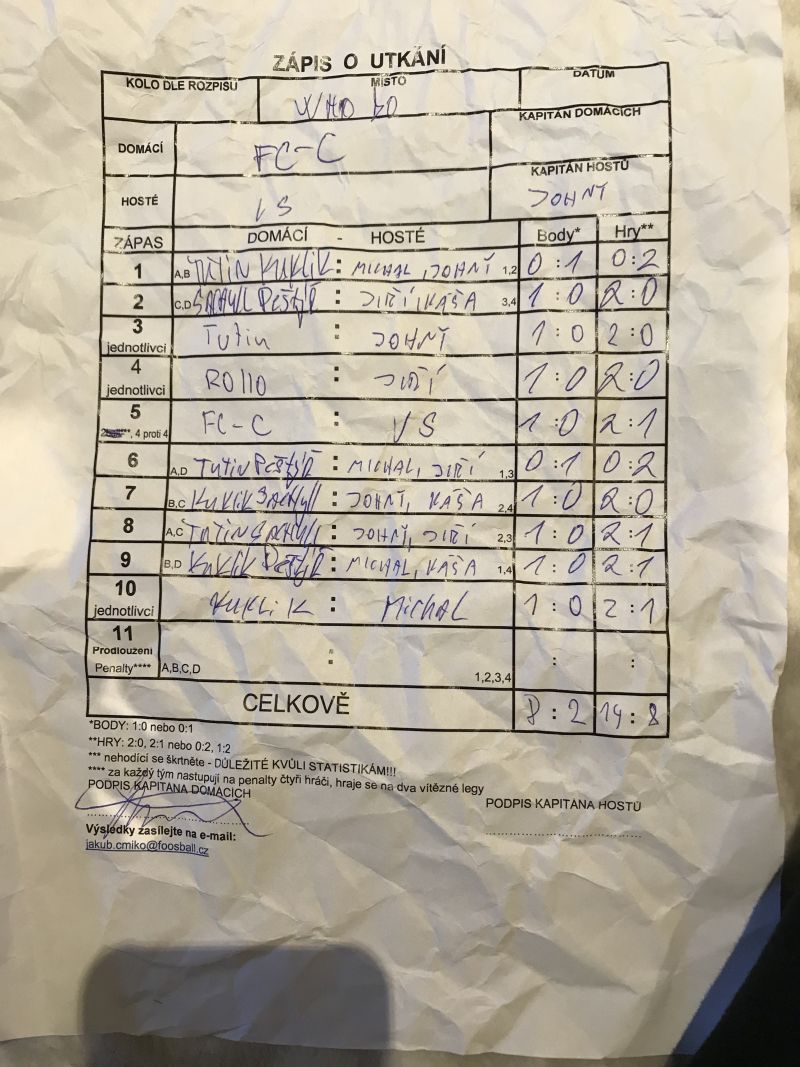 ZÁPIS O UTKÁNÍ
KOLO DLE ROZPISU MÍSTO DATUM
WHO
DOMÁCÍ FC-C KAPITÁN DOMÁCÍCH
HOSTÉ VS KAPITÁN HOSTŮ
JOHNY
ZÁPAS DOMÁCÍ - HOSTÉ Body* Hry**
1 A,B TUTIN KUKLIK : MICHAL, JOHNÝ 1,2 0 : 1 0 : 2
2 C,D : JIŘÍ, KÁŠA 3,4 1 : 0 2 : 0
3 jednotlivci Tutin : JOHNÝ 1 : 0 2 : 0
4 jednotlivci ROllO : JIŘÍ 1 : 0 2 : 0
5 , 4 proti 4 FC-C : VS 1 : 0 2 : 1
6 A,D TUTIN : MICHAL, JIŘÍ 1,3 0 : 1 0 : 2
7 B,C KUKLIK : JOHNÝ, KÁŠA 2,4 1 : 0 2 : 0
8 A,C TUTIN : JOHNÝ, JIŘÍ 2,3 1 : 0 2 : 1
9 B,D KUKLIK : MICHAL, KÁŠA 1,4 1 : 0 2 : 1
10 jednotlivci KUKLIK : MICHAL 1 : 0 2 : 1
11 Prodloužení Penalty**** A,B,C,D : 1,2,3,4 : :
CELKOVĚ 8 : 2 14 : 8
*BODY: 1:0 nebo 0:1
**HRY: 2:0, 2:1 nebo 0:2, 1:2
*** nehodící se škrtněte - DŮLEŽITÉ KVŮLI STATISTIKÁM!!!
**** za každý tým nastupují na penalty čtyři hráči, hraje se na dva vítězné legy
PODPIS KAPITÁNA DOMÁCÍCH PODPIS KAPITÁNA HOSTŮ
Výsledky zasílejte na e-mail:
jakub.cmiko@foosball.cz